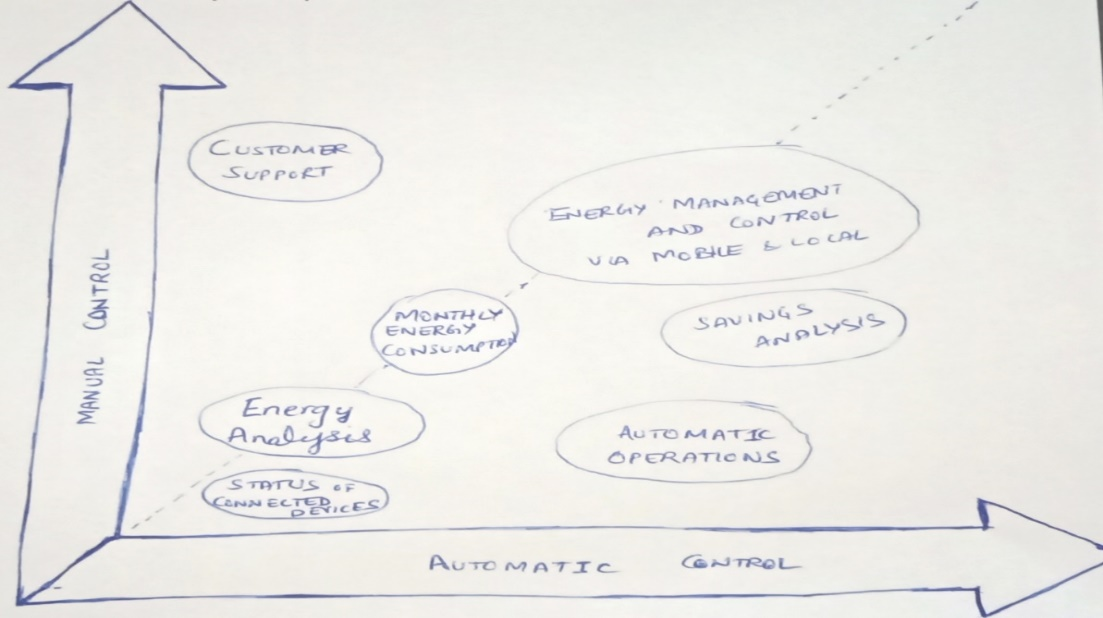 CUSTOMER
SUPPORT
ENERGY MANAGEMENT
AND CONTROL
VIA MOBILE & LOCAL
MONTHLY
ENERGY
CONSUMPTION
SAVINGS
ANALYSIS
Energy
Analysis
AUTOMATIC
OPERATIONS
STATUS OF
CONNECTED
DEVICES
MANUAL CONTROL
AUTOMATIC CONTROL